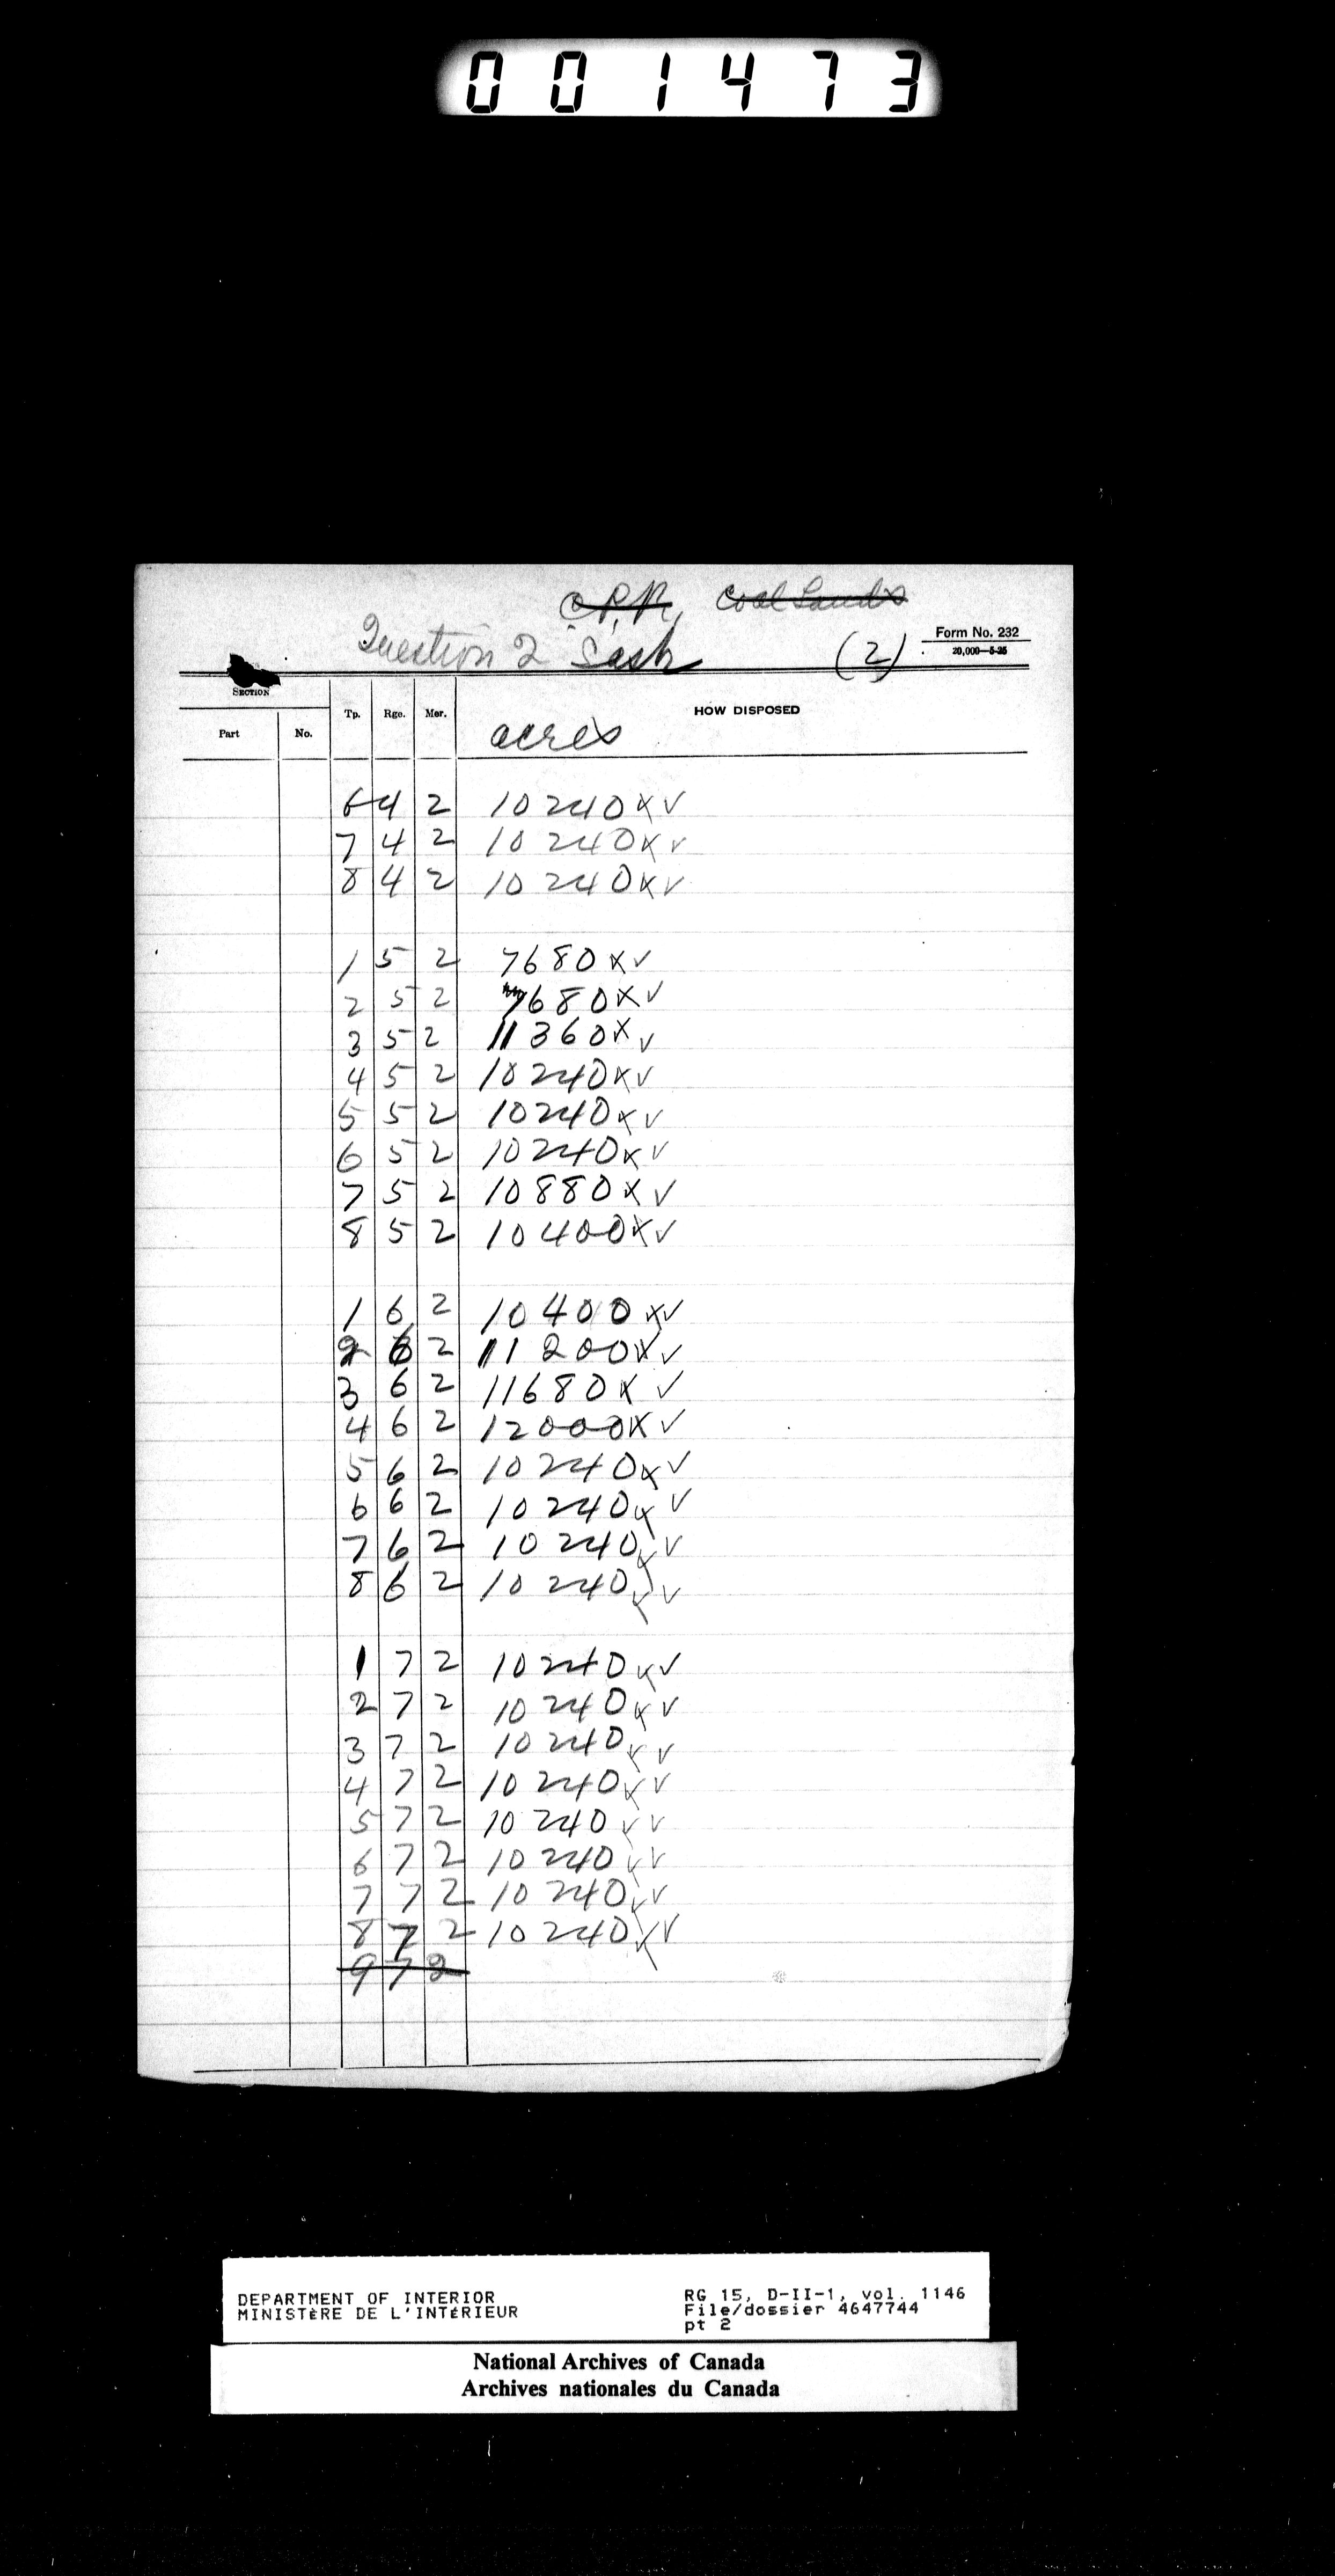 001473
C.P.R. Coal Lands
Question 2 Sask (2)
Form No. 232
20,000—5-25
SECTION
Part No. Tp. Rge. Mer. HOW DISPOSED
acres
6 4 2 10240 x ✓
7 4 2 10240 x ✓
8 4 2 10240 x ✓
1 5 2 7680 x ✓
2 5 2 7680 x ✓
3 5 2 11360 x ✓
4 5 2 10240 x ✓
5 5 2 10240 x ✓
6 5 2 10240 x ✓
7 5 2 10880 x ✓
8 5 2 10400 x ✓
1 6 2 10400 x ✓
2 6 2 11200 x ✓
3 6 2 11680 x ✓
4 6 2 12000 x ✓
5 6 2 10240 x ✓
6 6 2 10240 x ✓
7 6 2 10240 x ✓
8 6 2 10240 x ✓
1 7 2 10240 x ✓
2 7 2 10240 x ✓
3 7 2 10240 x ✓
4 7 2 10240 x ✓
5 7 2 10240 x ✓
6 7 2 10240 x ✓
7 7 2 10240 x ✓
8 7 2 10240 x ✓
9 7 2
DEPARTMENT OF INTERIOR
MINISTÈRE DE L'INTÉRIEUR
RG 15, D-II-1, vol. 1146
File/dossier 4647744
pt 2
National Archives of Canada
Archives nationales du Canada